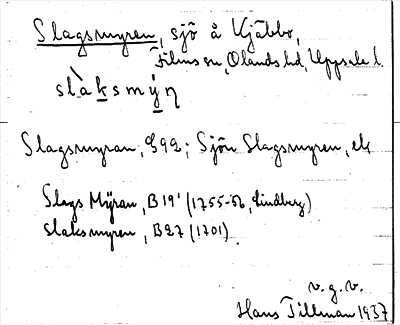 Slagsmyren, sjö å Kjäbbo,
Films sn, Olands hd, Uppsala l.
slàksmýn
Slagsmyran, G92; Sjön Slagsmyren, ek
Slags Myran, B19¹ (1755-56, Lindberg)
Slaksmyren, B27 (1701).
v. g. v.
Hans Tillman 1937